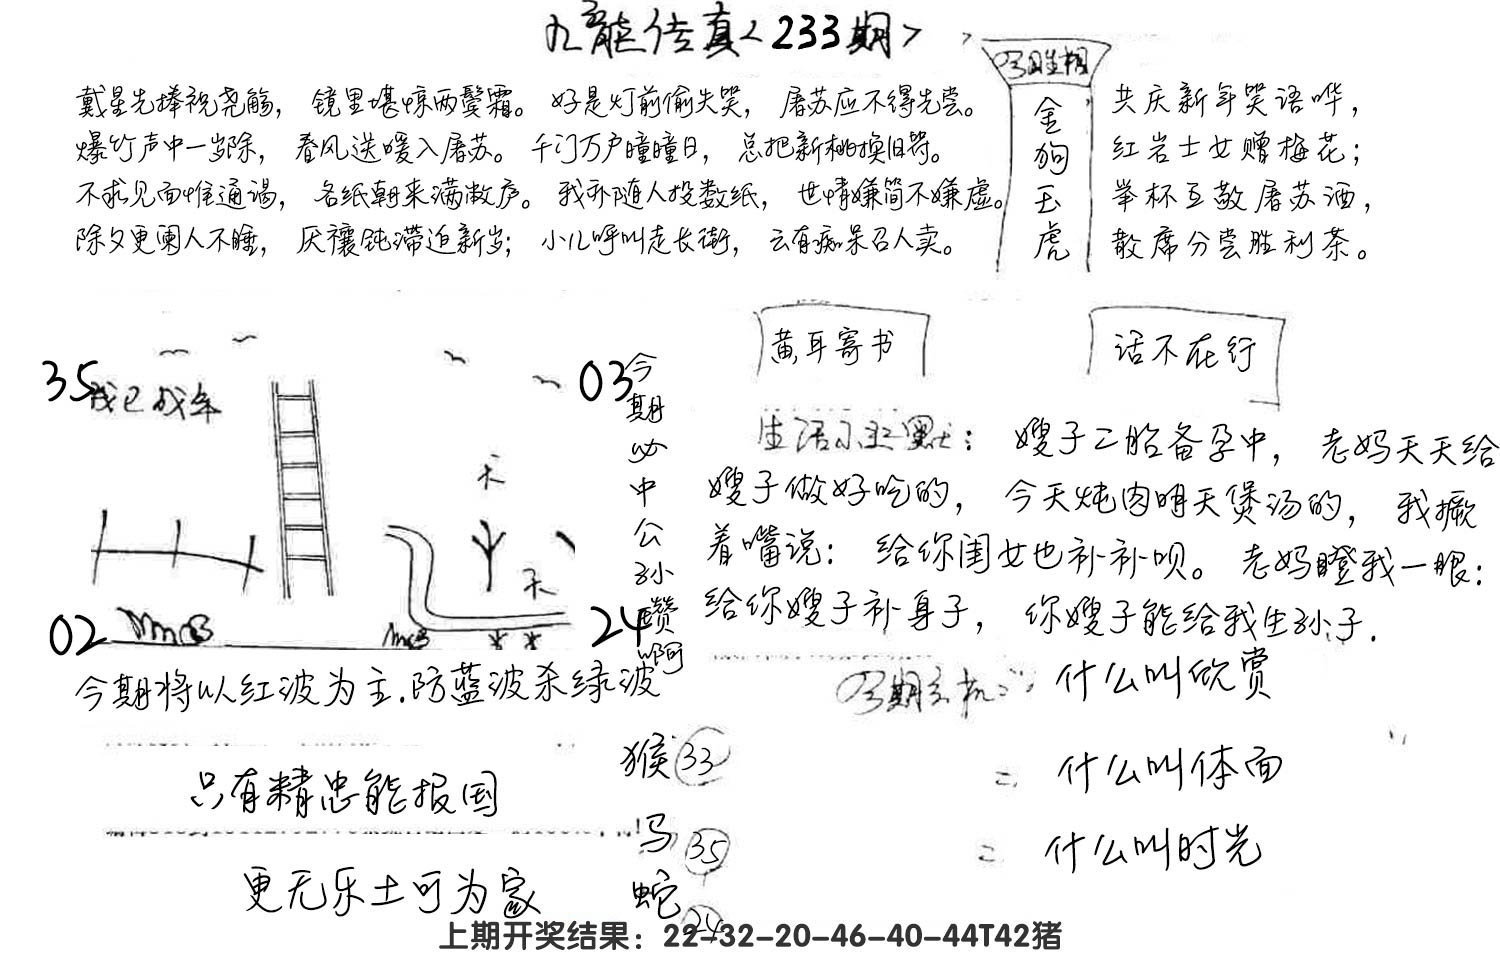 九龙传真<233期>
今期生相
戴星先捧祝尧觞，镜里堪惊两鬓霜。好是灯前偷失笑，屠苏应不得先尝。
爆竹声中一岁除，春风送暖入屠苏。千门万户曈曈日，总把新桃换旧符。
不求见面惟通谒，名纸朝来满敝庐。我亦随人投数纸，世情嫌简不嫌虚。
除夕更阑人不睡，厌禳钝滞迫新岁；小儿呼叫走长街，云有痴呆召人卖。
金狗玉虎
共庆新年笑语哗，
红岩士女赠梅花；
举杯互敬屠苏酒，
散席分尝胜利茶。
黄耳寄书
话不在行
35
03
02
24
天
天
今期必中公孙赞啊
生活小幽默：嫂子二胎备孕中，老妈天天给
嫂子做好吃的，今天炖肉明天煲汤的，我撅
着嘴说：给你闺女也补补呗。老妈瞪我一眼：
给你嫂子补身子，你嫂子能给我生孙子.
今期将以红波为主.防蓝波杀绿波
今期玄机：什么叫欣赏
二 什么叫体面
二 什么叫时光
只有精忠能报国
更无乐土可为家
猴 33
马 35
蛇 24
上期开奖结果：22-32-20-46-40-44T42猪